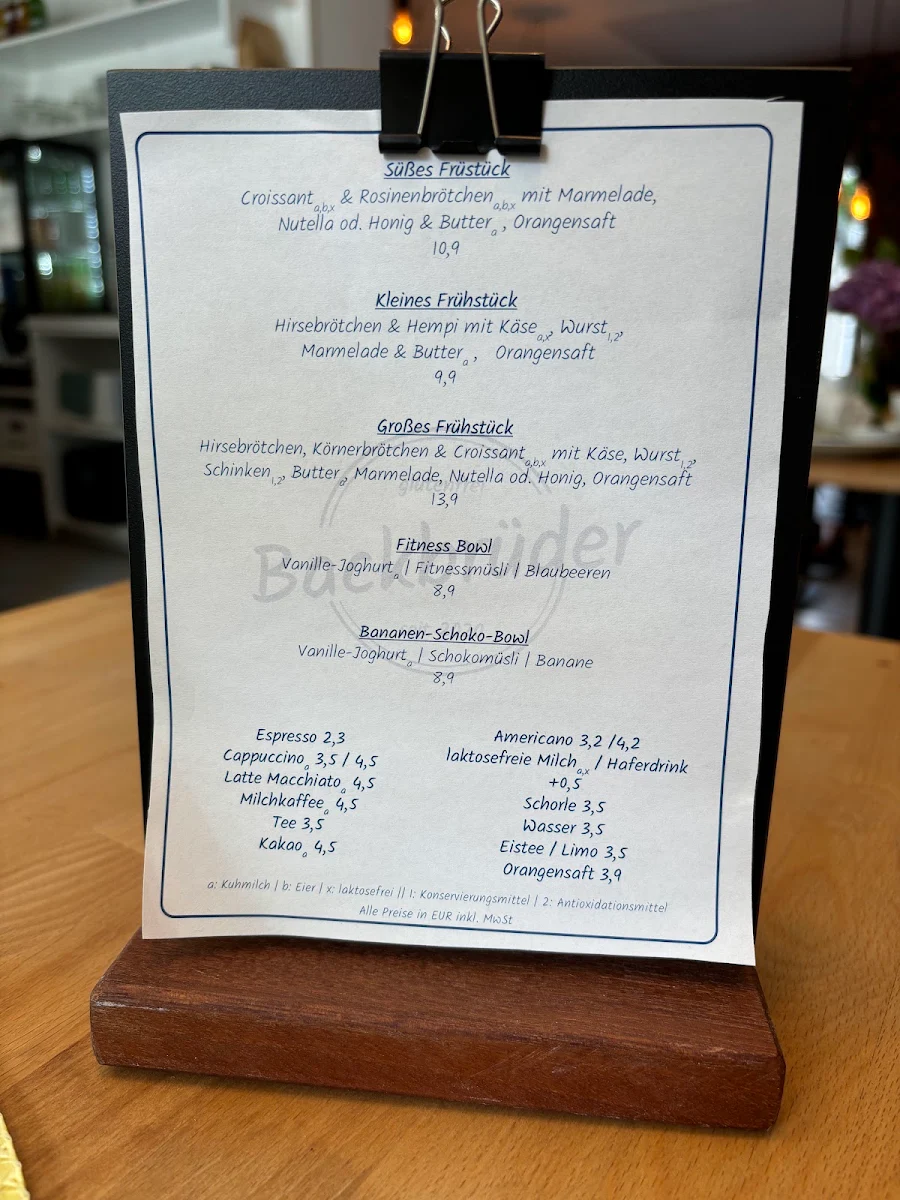 Süßes Früstück
Croissant a,b,x & Rosinenbrötchen a,b,x mit Marmelade,
Nutella od. Honig & Butter a , Orangensaft
10,9
Kleines Frühstück
Hirsebrötchen & Hempi mit Käse a,x, Wurst 1,2,
Marmelade & Butter a , Orangensaft
9,9
Großes Frühstück
Hirsebrötchen, Körnerbrötchen & Croissant a,b,x mit Käse, Wurst 1,2,
Schinken 1,2, Butter a, Marmelade, Nutella od. Honig, Orangensaft
13,9
glutenfrei
Backbrüder
seit 2020
Fitness Bowl
Vanille-Joghurt a | Fitnessmüsli | Blaubeeren
8,9
Bananen-Schoko-Bowl
Vanille-Joghurt a | Schokomüsli | Banane
8,9
Espresso 2,3
Cappuccino a 3,5 / 4,5
Latte Macchiato a 4,5
Milchkaffee a 4,5
Tee 3,5
Kakao a 4,5
Americano 3,2 /4,2
laktosefreie Milch a,x / Haferdrink
+0,5
Schorle 3,5
Wasser 3,5
Eistee / Limo 3,5
Orangensaft 3,9
a: Kuhmilch | b: Eier | x: laktosefrei || 1: Konservierungsmittel | 2: Antioxidationsmittel
Alle Preise in EUR inkl. MwSt